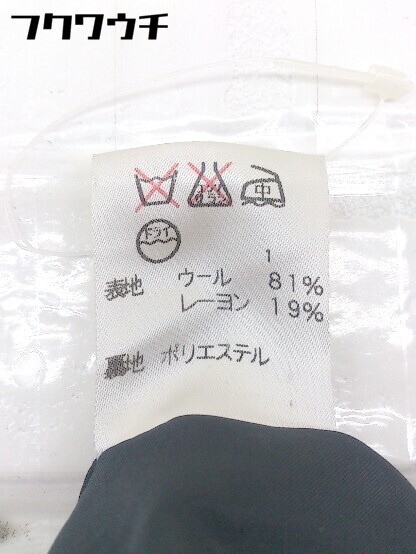 フクワウチ
エンソ
サラシ
中
ドライ
1
表地 ウール 81%
レーヨン 19%
裏地 ポリエステル